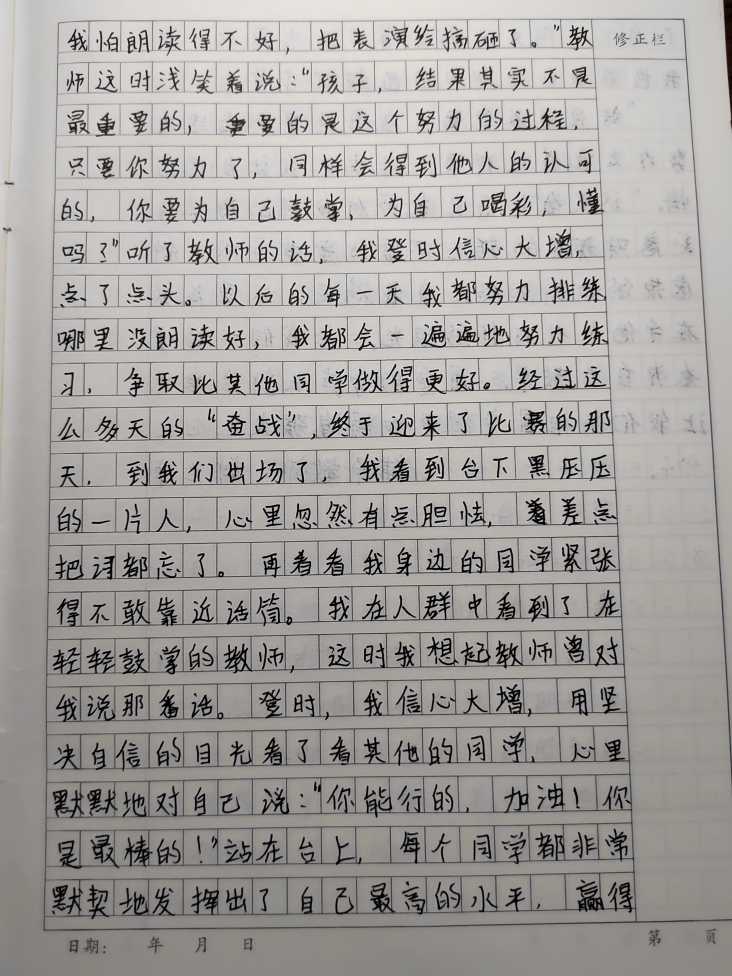 我怕朗读得不好，把表演给搞砸了。”教
修正栏
师这时浅笑着说：“孩子，结果其实不是
最重要的，重要的是这个努力的过程，
只要你努力了，同样会得到他人的认可
的，你要为自己鼓掌，为自己喝彩，懂
吗？”听了教师的话，我登时信心大增，
点了点头。以后的每一天我都努力排练
哪里没朗读好，我都会一遍遍地努力练
习，争取比其他同学做得更好。经过这
么多天的“奋战”，终于迎来了比赛的那
天，到我们出场了，我看到台下黑压压
的一片人，心里忽然有点胆怯，差点
把词都忘了。再看看我身边的同学紧张
得不敢靠近话筒。我在人群中看到了在
轻轻鼓掌的教师，这时我想起教师曾对
我说那番话。登时，我信心大增，用坚
决自信的目光看了看其他的同学，心里
默默地对自己说：“你能行的，加油！你
是最棒的！”站在台上，每个同学都非常
默契地发挥出了自己最高的水平，赢得
日期： 年 月 日
第 页